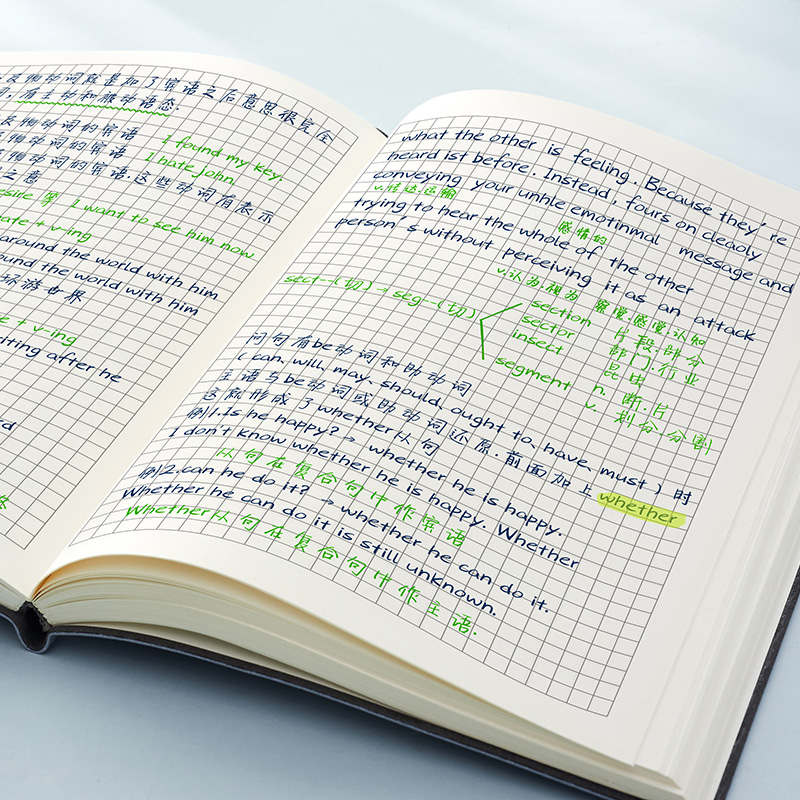 及物动词就是加了宾语之后意思很完全
有主动和被动语态.
及物动词的宾语 I found my key.
物动词的宾语 I hate John.
物动词的宾语.这些动词有表示
之意
eside 等 I want to see him now
ate + v-ing
around the world with him
ound the world with him
环游世界
e + v-ing
iting after he
what the other is feeling. Because they're
heard ist before. Instead, fours on cleaoly
conveying your unhle emotinmal message and
v.传达.运输
trying to hear the whole of the other
感情的
person's without perceiving it as an attack
v.认为.视为 察觉.感觉.认知
sect--(切) → seg--(切)
section 片段.部分
sector 部门.行业
insect 昆虫
segment n. 断.片
v. 划分.分割
问句有be动词和助动词
( can, will, may, should, ought to, have, must ) 时
主语与be动词或助动词还原.前面加上 whether
这就形成了whether从句
例1.Is he happy? → whether he is happy.
I don't know whether he is happy. Whether
从句在复合句中作宾语
例2.can he do it? → whether he can do it.
Whether he can do it is still unknown.
Whether从句在复合句中作主语.